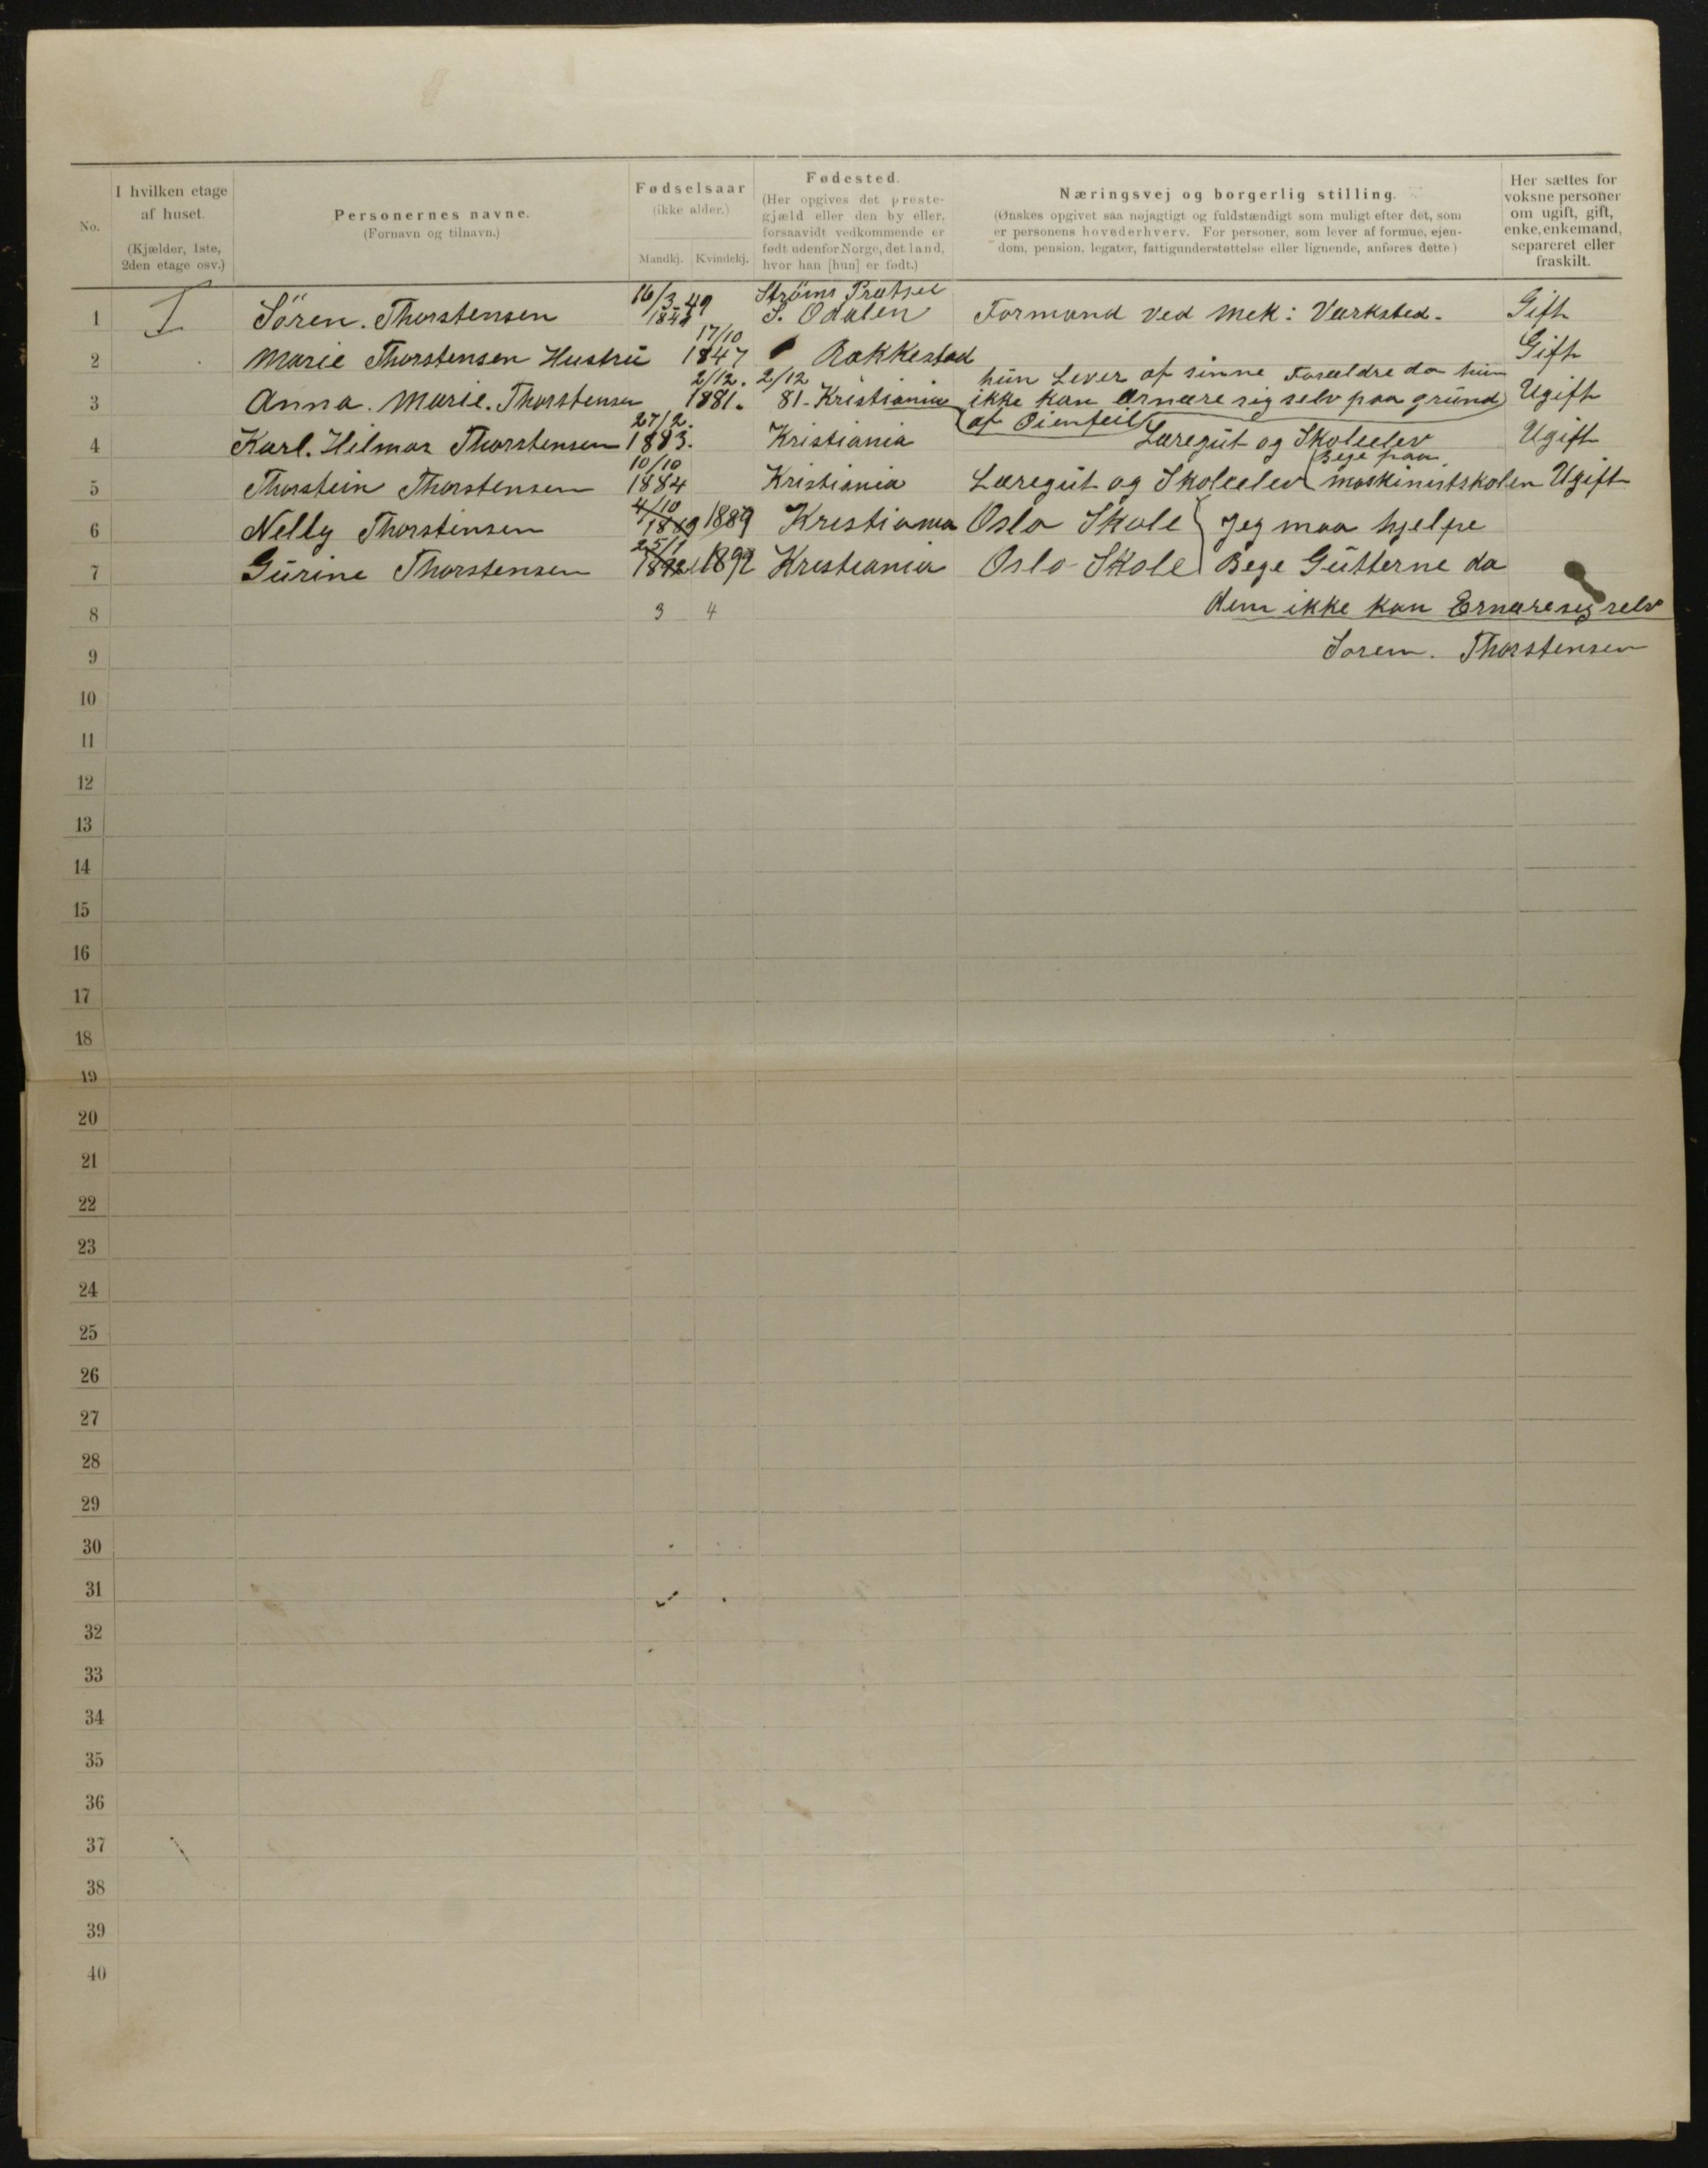 No.
I hvilken etage af huset.
(Kjælder, 1ste, 2den etage osv.)
Personernes navne.
(Fornavn og tilnavn.)
Fødselsaar
(ikke alder.)
Mandkj. Kvindekj.
Fødested.
(Her opgives det preste-
gjæld eller den by eller,
forsaavidt vedkommende er
født udenfor Norge, det land,
hvor han [hun] er født.)
Næringsvej og borgerlig stilling.
(Ønskes opgivet saa nøjagtigt og fuldstændigt som muligt efter det, som
er personens hovederhverv. For personer, som lever af formue, ejen-
dom, pension, legater, fattigunderstøttelse eller lignende, anføres dette.)
Her sættes for
voksne personer
om ugift, gift,
enke, enkemand,
separeret eller
fraskilt.
16/3 49 Strøms
1 I Sören. Thorstensen 1849 S. Odalen Formand ved Mek: Værksted. Gift
17/10
2 Marie Thorstensen Hustrü 1847 Rakkestad Gift
2/12. 2/12 hün Lever af sinne Forældre da hün
3 Anna. Marie. Thorstensen 1881. 81-Kristiania ikke kan Ernære sig selv paa gründ Ugift
27/2. af Øienfeil
4 Karl. Hilmar Thorstensen 1883. Kristiania Læregüt og Skoleelev Ugift
10/10 Bege paa
5 Thorstein Thorstensen 1884 Kristiania Læregüt og Skoleelev maskinistskolen Ugift
4/10
6 Nelly Thorstensen 1889 1889 Kristiania Oslo Skole Jeg maa hjelpe
25/1
7 Gürine Thorstensen 1892 1892 Kristiania Oslo Skole Bege Gütterne da
8 3 4 dem ikke kan Ernære sig selv
9 Soren. Thorstensen
10
11
12
13
14
15
16
17
18
19
20
21
22
23
24
25
26
27
28
29
30
31
32
33
34
35
36
37
38
39
40